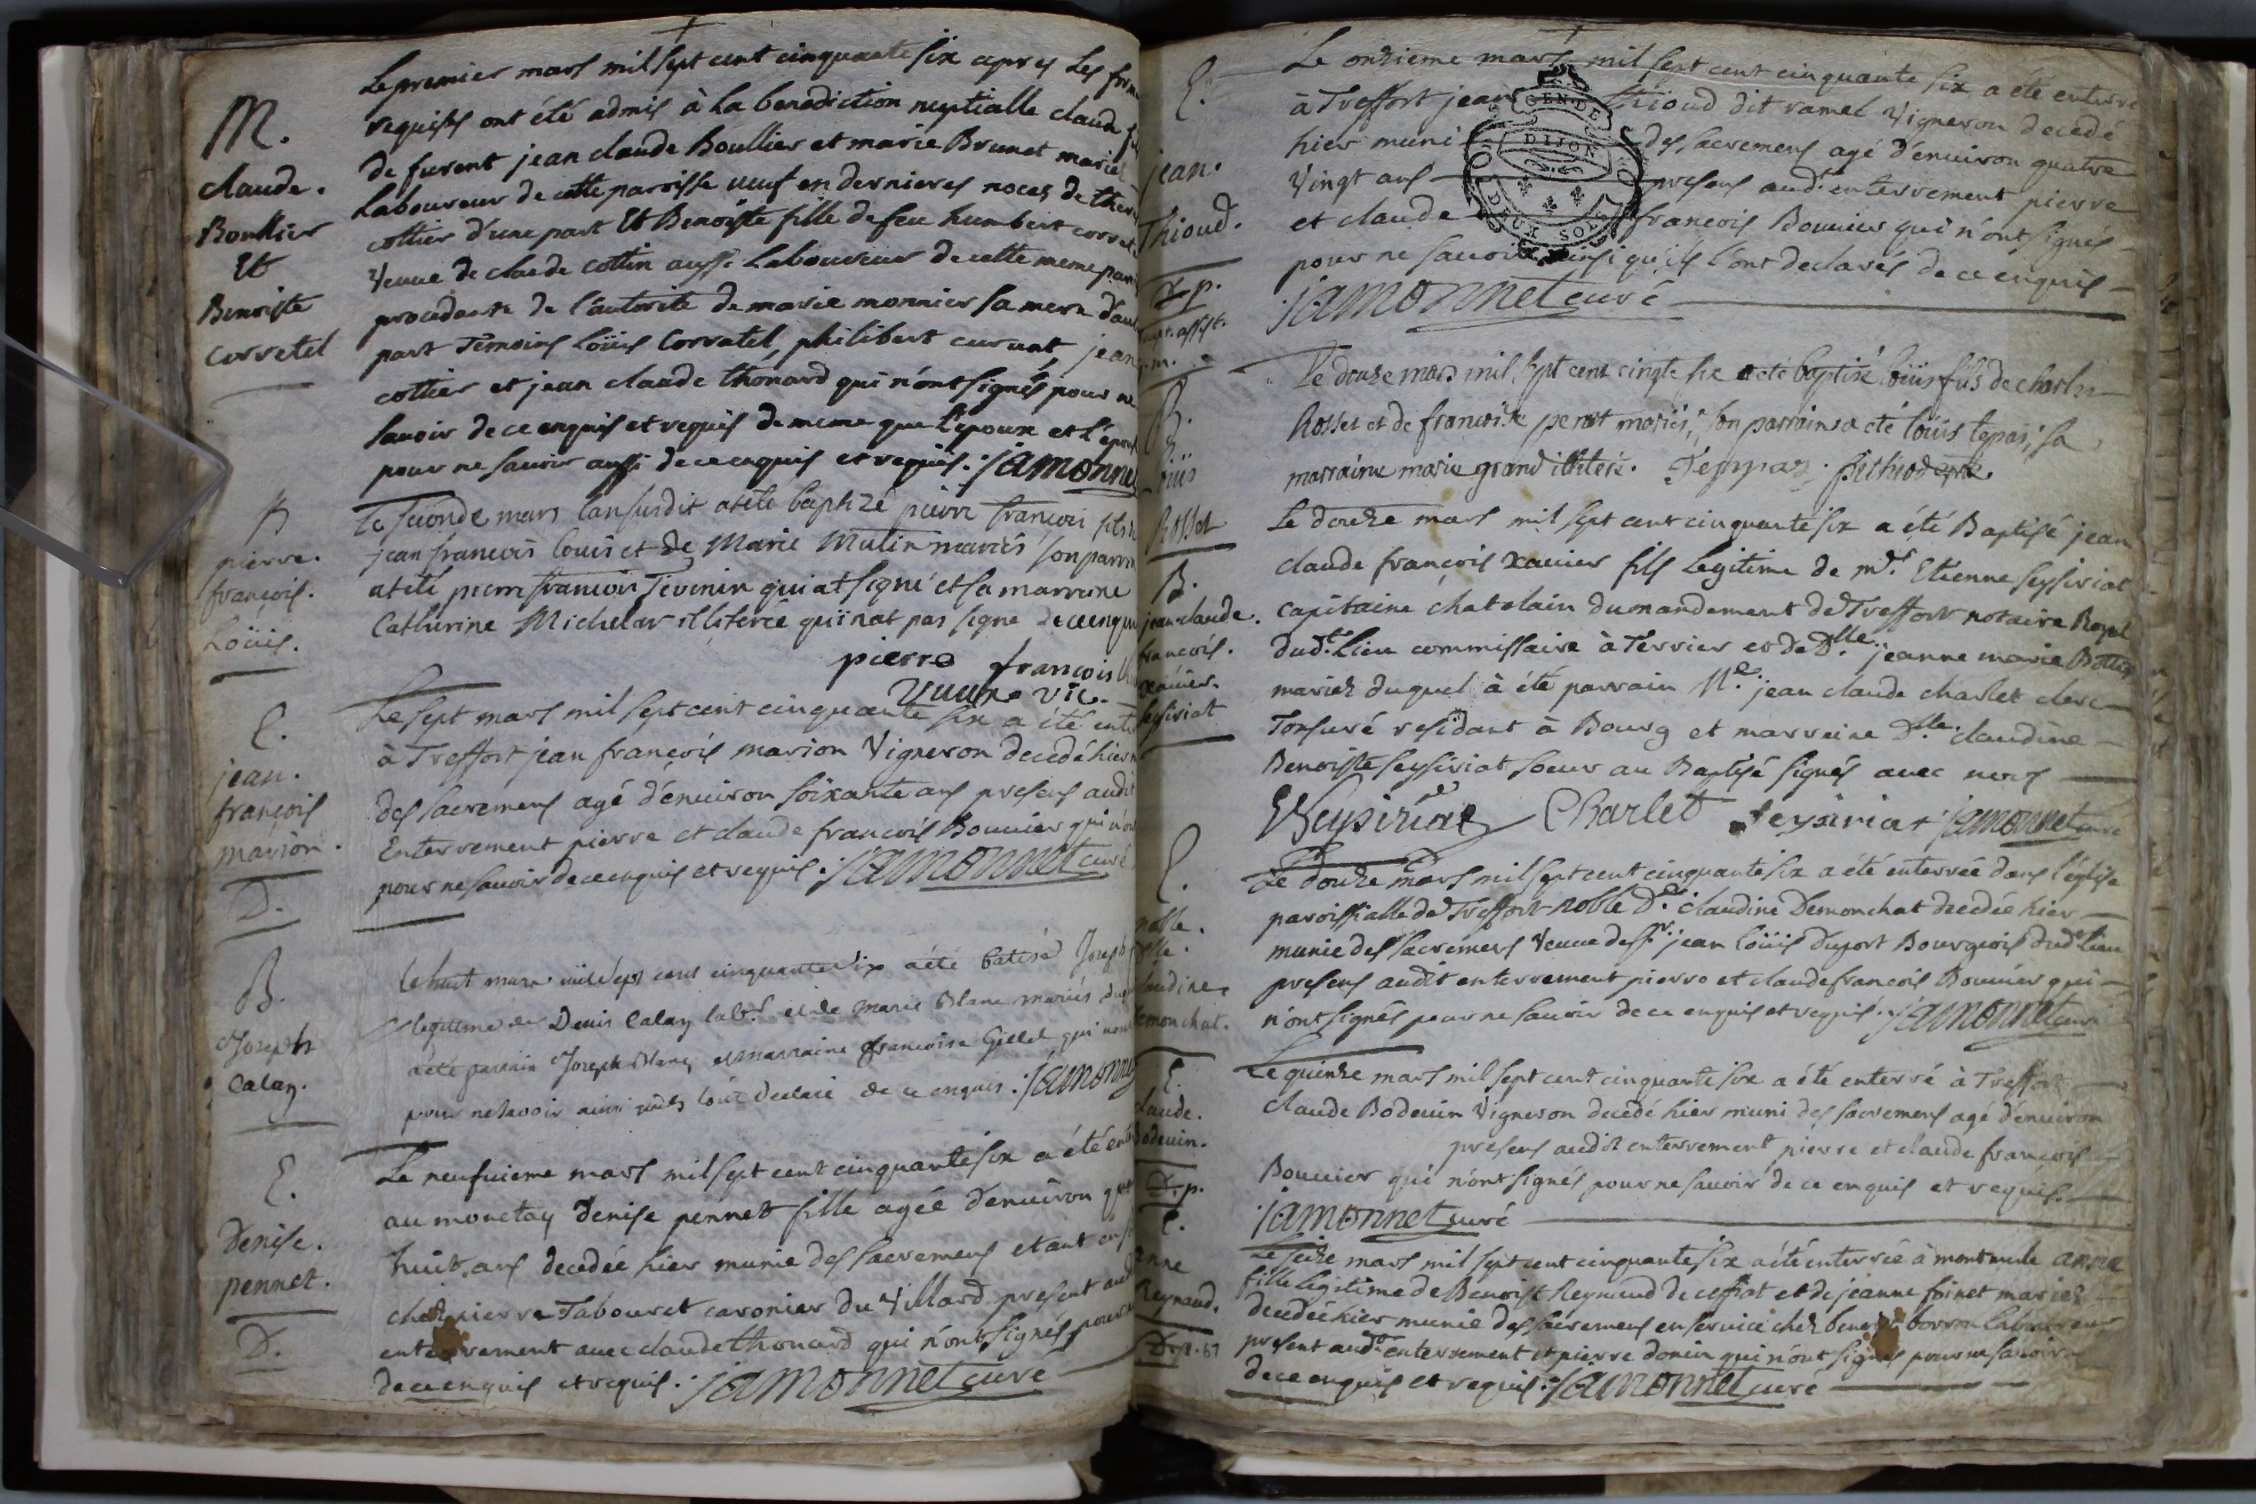 M.
claude.
Boullier
Et
Benoiste
Corretel
Le premier mars mil sept cent cinquante six apres les
requises ont été admis à la benediction nuptialle claude
de furent jean claude Boullier et marie Brunet mariés
Laboureur de cette paroisse veuf en dernieres noces de
cottier d'une part Et Benoiste fille de feu humbert
Veuve de claude cottin aussi Laboureur de cette meme
procedante de l'autorité de marie monnier sa mere
part Temoins Loüis Corretel, philibert curunt, jean
cottier et jean claude thonard qui n'ont signés pour ne
savoir de ce enquis et requis de meme que l'epoux et
pour ne savoir aussi de ce enquis et requis. jamonnet
B
pierre.
françois.
Loüis.
le seconde mars lan susdit at eté baptizé pierre françois
jean francois Louis et de Marie Mutin mariés son
at eté pierre francois Tevenin qui at signé et sa marrene
Catherine Michelar illiterée qui nat pas signe de ce
pierre francois
E.
jean.
françois
marion.
D.
Le sept mars mil sept cent cinquante six a été
à Treffort jean françois marion Vigneron decedé hier
des sacremens agé d'environ soixante ans presens audit
Enterrement pierre et claude francois Bouvier qui
pour ne savoir de ce enquis et requis. jamonnet curé
B.
Joseph
Calay.
le huit mars mille sept cent cinquante six a été batisé Joseph
legitime de Denis Calay labr. et de Marie Blanc mariés
a été parrain Joseph Blanc et marraine francoise Gillet qui
pour ne savoir ainsi de ce enquis. jamonnet
E.
Denise.
pennet.
D.
Le neufvieme mars mil sept cent cinquante six a été
au monetay Denise pennet fille agée d'environ
huit ans decedée hier munie des sacremens etant
chez pierre Tabouret caronier du Villard present
enterrement avec claude thonard qui n'ont signés
de ce enquis et requis. jamonnet curé
E.
jean.
Thioud.
D.p.
Le onzieme mars mil sept cent cinquante six a été enterré
à Treffort jean thioud dit ramel Vigneron decedé
hier muni des sacremens agé d'environ quatre
Vingt ans presens audt. enterrement pierre
et claude françois Bouvier qui n'ont signés
pour ne savoir ainsi qu'ils l'ont declarés de ce enquis
jamonnet curé
GEN. DE
DIJON
DEUX SOLS
B.
Rosset
Le douze mars mil sept cent cinqte six a eté baptisé loüis fils de charles
Rosset et de francoise perrot mariés, son parrain a eté loüis
marraine marie grand illiterée.
B.
jean claude.
francois.
xavier.
seysiriat
Le douze mars mil sept cent cinquante six a été Baptisé jean
claude françois xavier fils legitime de mr. Etienne seysiriat
capitaine chatelain du mandement de Treffort notaire Royal
dudt. Lieu commissaire à Terrier et de Dlle. jeanne marie
mariez duquel à été parrain Me. jean claude charlet clerc
Tonsuré residant à Bourg et marreine Dlle. claudine
Benoiste seysiriat soeur au Baptisé signés avec nous
Seysiriat Charlet seysiriat jamonnet curé
E.
noble.
claudine.
Demonchat.
Le douze mars mil sept cent cinquante six a été enterrée dans l'église
paroissialle de Treffort noble De. claudine Demonchat decedée hier
munie des sacremens Veuve de sr. jean loüis Duport Bourgeois dudt. lieu
presens audit enterrement pierre et claude francois Bouvier qui
n'ont signés pour ne savoir de ce enquis et requis. jamonnet curé
E.
claude.
Bodevin.
D.p.
Le quinze mars mil sept cent cinquante six a été enterré à Treffort
claude Bodevin Vigneron decedé hier muni des sacremens agé d'environ
presens audit enterrement pierre et claude françois
Bouvier qui n'ont signés pour ne savoir de ce enquis et requis.
jamonnet curé
E.
anne
Reynaud.
Le seize mars mil sept cent cinquante six a été enterrée à montmule anne
fille legitime de Benoist Reynaud de ceffiat et de jeanne foinet mariez
decedée hier munie des sacremens en service chez benoist borron laboureur
present audt. enterrement et pierre donin qui n'ont signés pour ne savoir
de ce enquis et requis. jamonnet curé